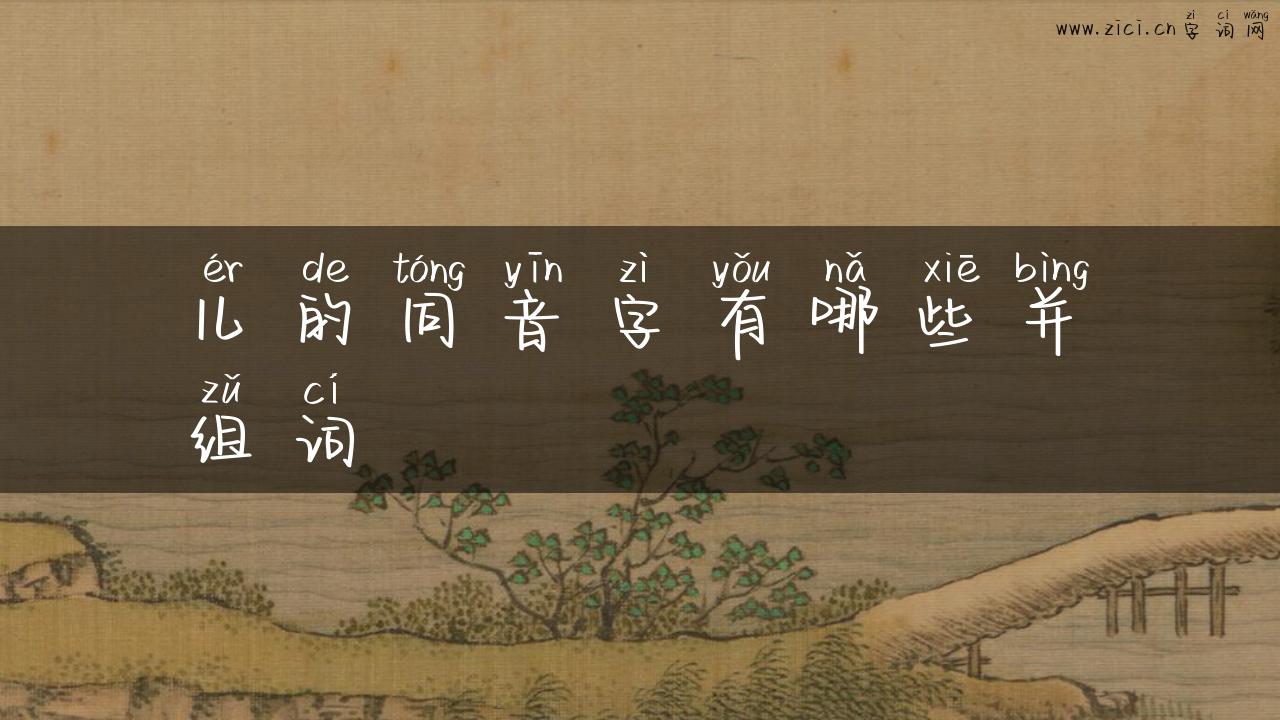 zì cí wǎng
www.zici.cn 字词网
ér de tóng yīn zì yǒu nǎ xiē bìng
儿的同音字有哪些并
zǔ cí
组词